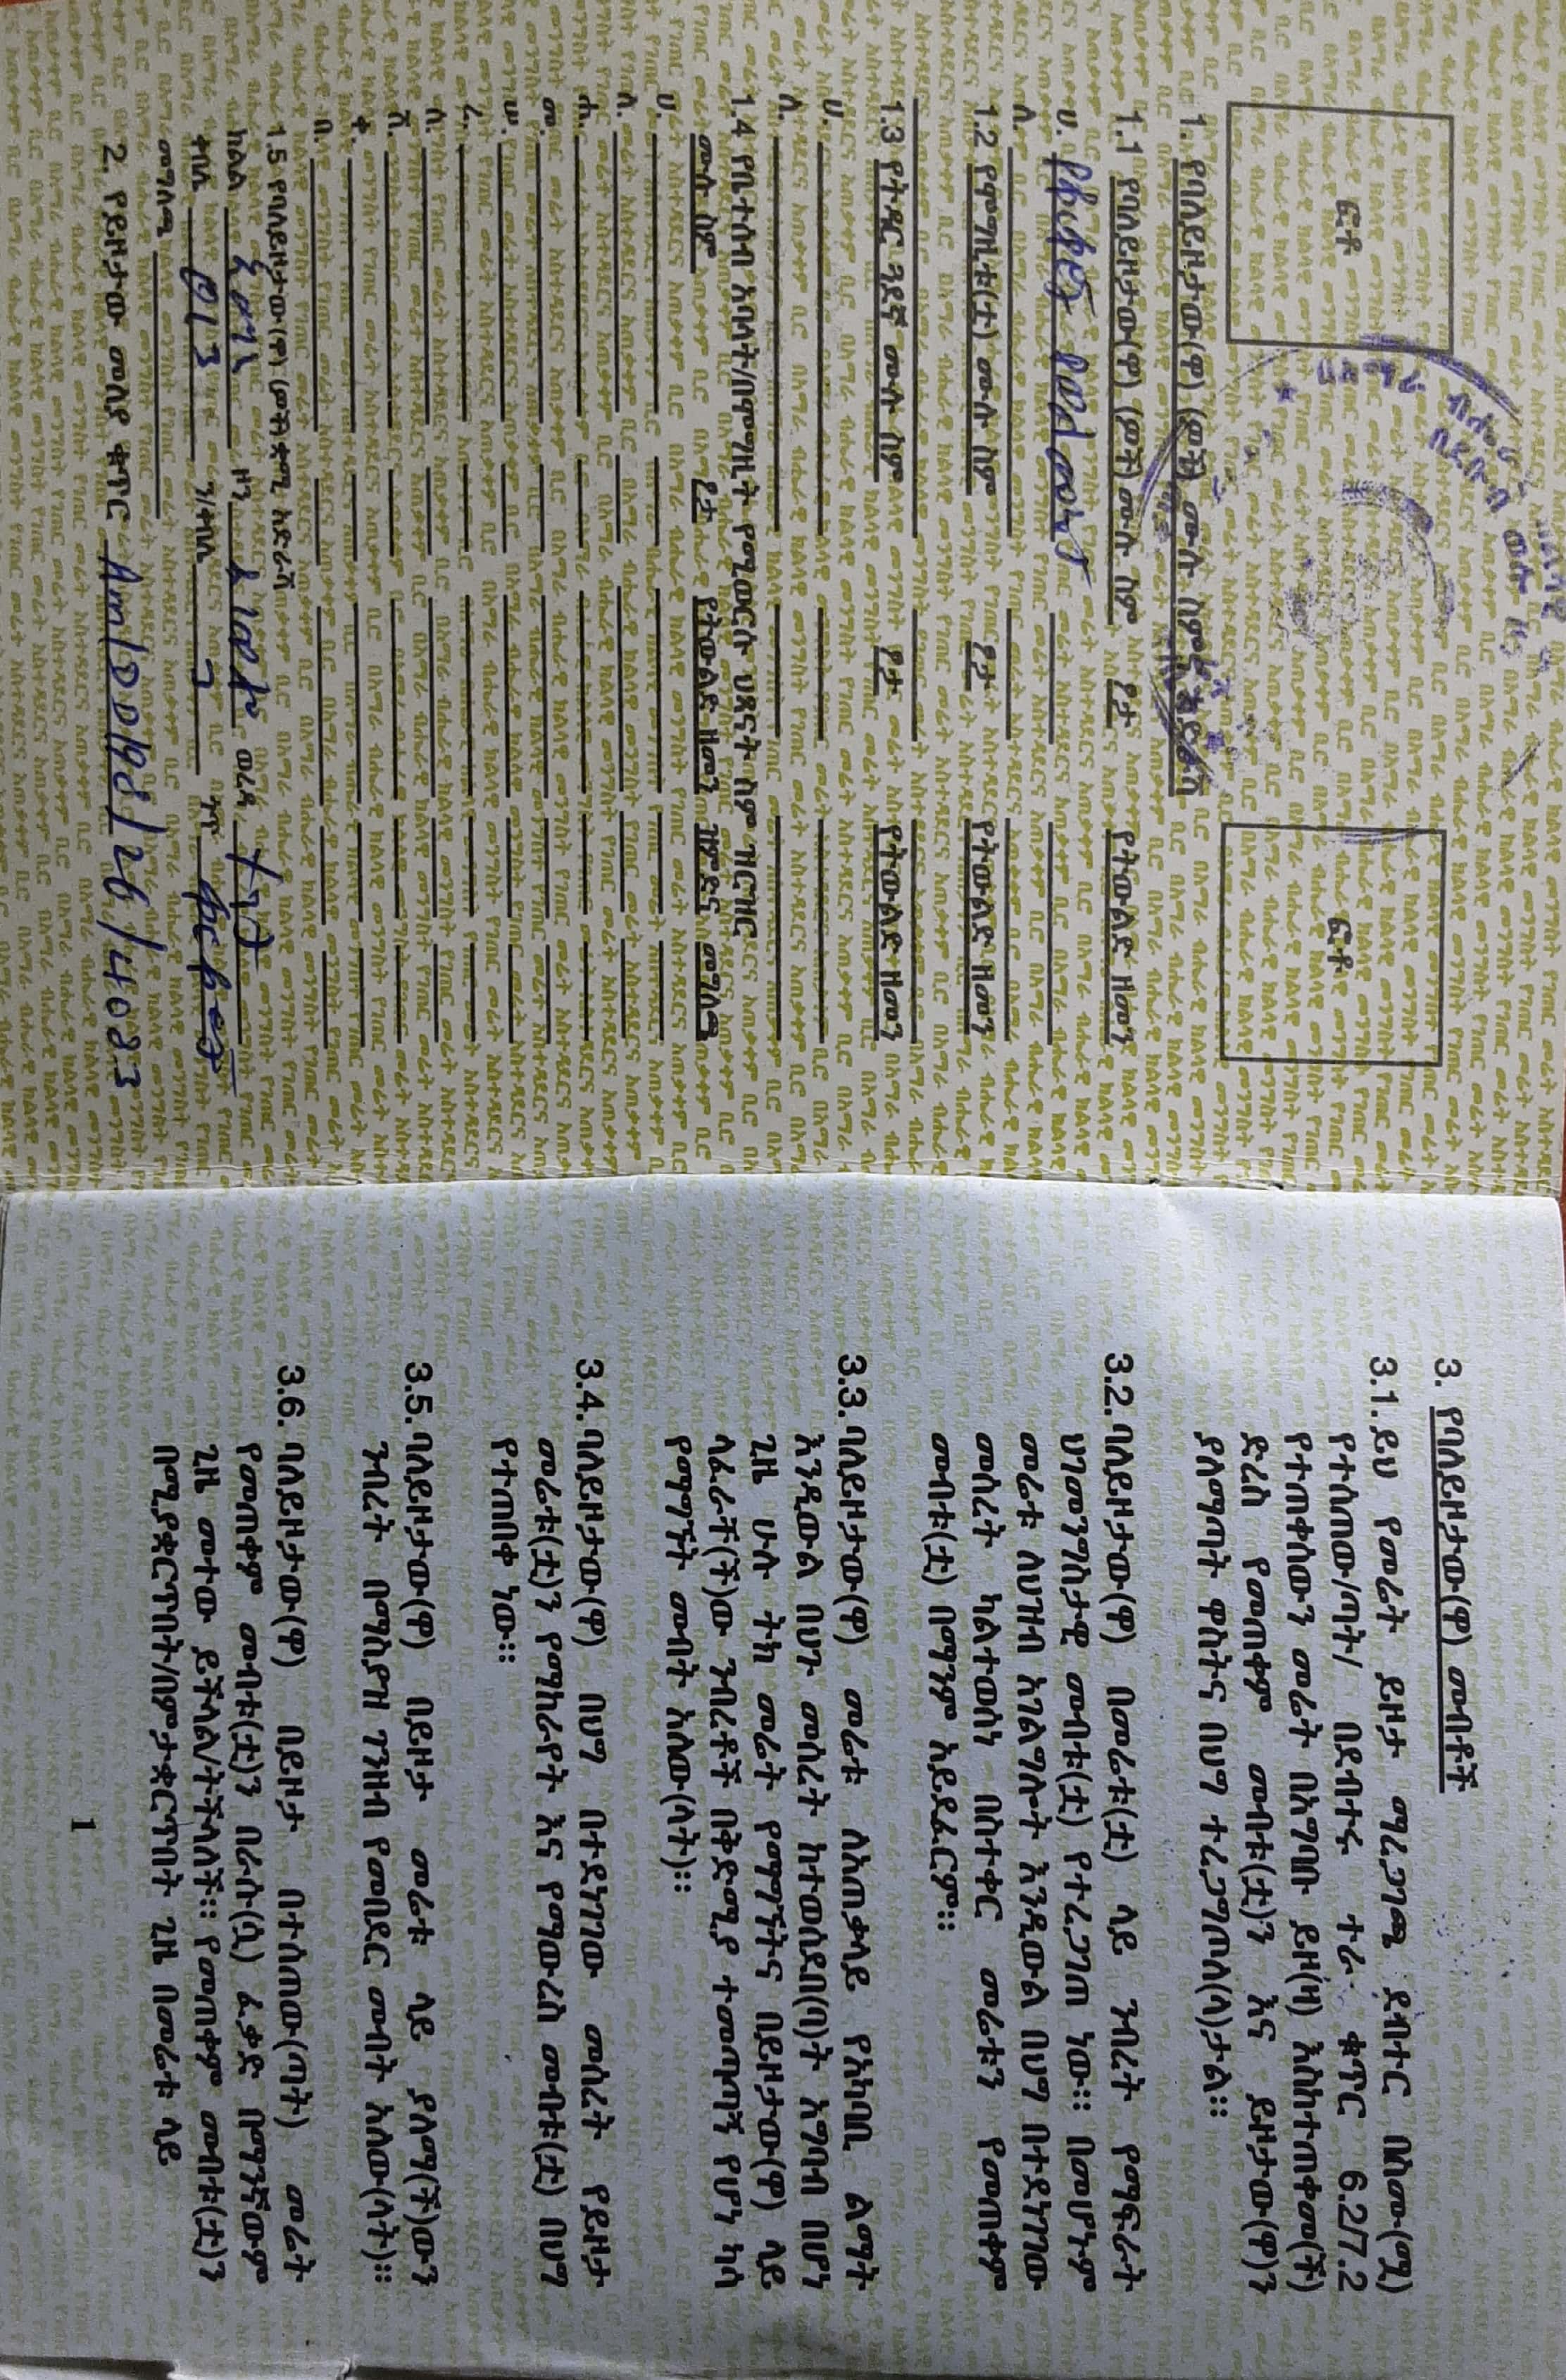 ፎቶ
ፎቶ
1. የባለይዞታው(ዋ) (ዎች) ሙሉ ስምና አድራሻ
1.1 የባለይዞታው(ዋ) (ዎች) ሙሉ ስም ፆታ የትውልድ ዘመን
ሀ.
ለ.
1.2 የሞግዚቱ(ቷ) ሙሉ ስም ፆታ የትውልድ ዘመን
1.3 የትዳር ጓደኛ ሙሉ ስም ፆታ የትውልድ ዘመን
ሀ.
ለ.
1.4 የቤተሰብ አባላት/በሞግዚት የሚወርሱ ህጻናት ስም ዝርዝር
ሙሉ ስም ፆታ የትውልድ ዘመን ዝምድና መግለጫ
ሀ.
ለ.
ሐ.
መ.
ሠ.
ረ.
ሰ.
ሸ.
ቀ.
በ.
1.5 የባለይዞታው(ዋ) (ዎች) ቋሚ አድራሻ
ክልል አማራ ዞን ወረዳ
ቀበሌ 013 ን/ቀበሌ ጎጥ
መግለጫ
2. የይዞታው መለያ ቁጥር 26/4083
3. የባለይዞታው(ዋ) መብቶች
3.1. ይህ የመሬት ይዞታ ማረጋገጫ ደብተር በስሙ(ሟ)
የተሰጠው/ጣት/ በደብተሩ ተራ ቁጥር 6.2/7.2
የተጠቀሰውን መሬት በአግባቡ ይዞ(ዛ) እስከተጠቀመ(ች)
ድረስ የመጠቀም መብቱ(ቷ)ን እና ይዞታው(ዋ)ን
ያለማጣት ዋስትና በህግ ተረጋግጦለ(ላ)ታል።
3.2. ባለይዞታው(ዋ) በመሬቱ(ቷ) ላይ ንብረት የማፍራት
ህገመንግስታዊ መብቱ(ቷ) የተረጋገጠ ነው። በመሆኑም
መሬቱ ለህዝብ አገልግሎት እንዲውል በህግ በተደነገገው
መሰረት ካልተወሰነ በስተቀር መሬቱን የመጠቀም
መብቱ(ቷ) በማንም አይደፈርም።
3.3. ባለይዞታው(ዋ) መሬቱ ለአጠቃላይ የአካባቢ ልማት
እንዲውል በህጉ መሰረት ከተወሰደበ(ባ)ት አግባብ በሆነ
ጊዜ ሁሉ ትክ መሬት የማግኘትና በይዞታው(ዋ) ላይ
ላፈራቸ(ች)ው ንብረቶች በቅድሚያ ተመጣጣኝ የሆነ ካሳ
የማግኘት መብት አለው(ላት)።
3.4. ባለይዞታው(ዋ) በህግ በተደነገገው መሰረት የይዞታ
መሬቱ(ቷ)ን የማከራየት እና የማውረስ መብቱ(ቷ) በህግ
የተጠበቀ ነው።
3.5. ባለይዞታው(ዋ) በይዞታ መሬቱ ላይ ያለማ(ች)ውን
ንብረት በማስያዝ ገንዘብ የመበደር መብት አለው(ላት)።
3.6. ባለይዞታው(ዋ) በይዞታ በተሰጠው(ጣት) መሬት
የመጠቀም መብቱ(ቷ)ን በራሱ(ሷ) ፈቃድ በማንኛውም
ጊዜ መተው ይችላል/ትችላለች። የመጠቀም መብቱ(ቷ)ን
በሚያቋርጥበት/በምታቋርጥበት ጊዜ በመሬቱ ላይ
1